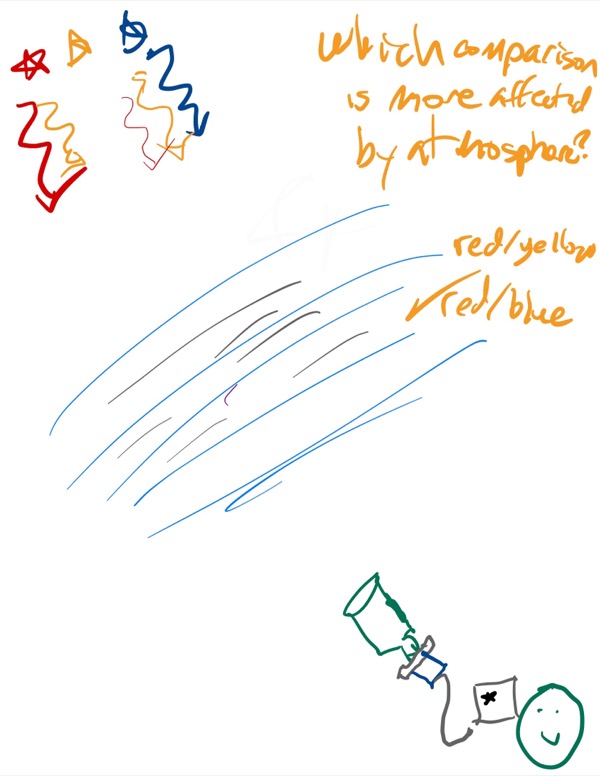 Which comparison
is more affected
by atmosphere?
red/yellow
red/blue